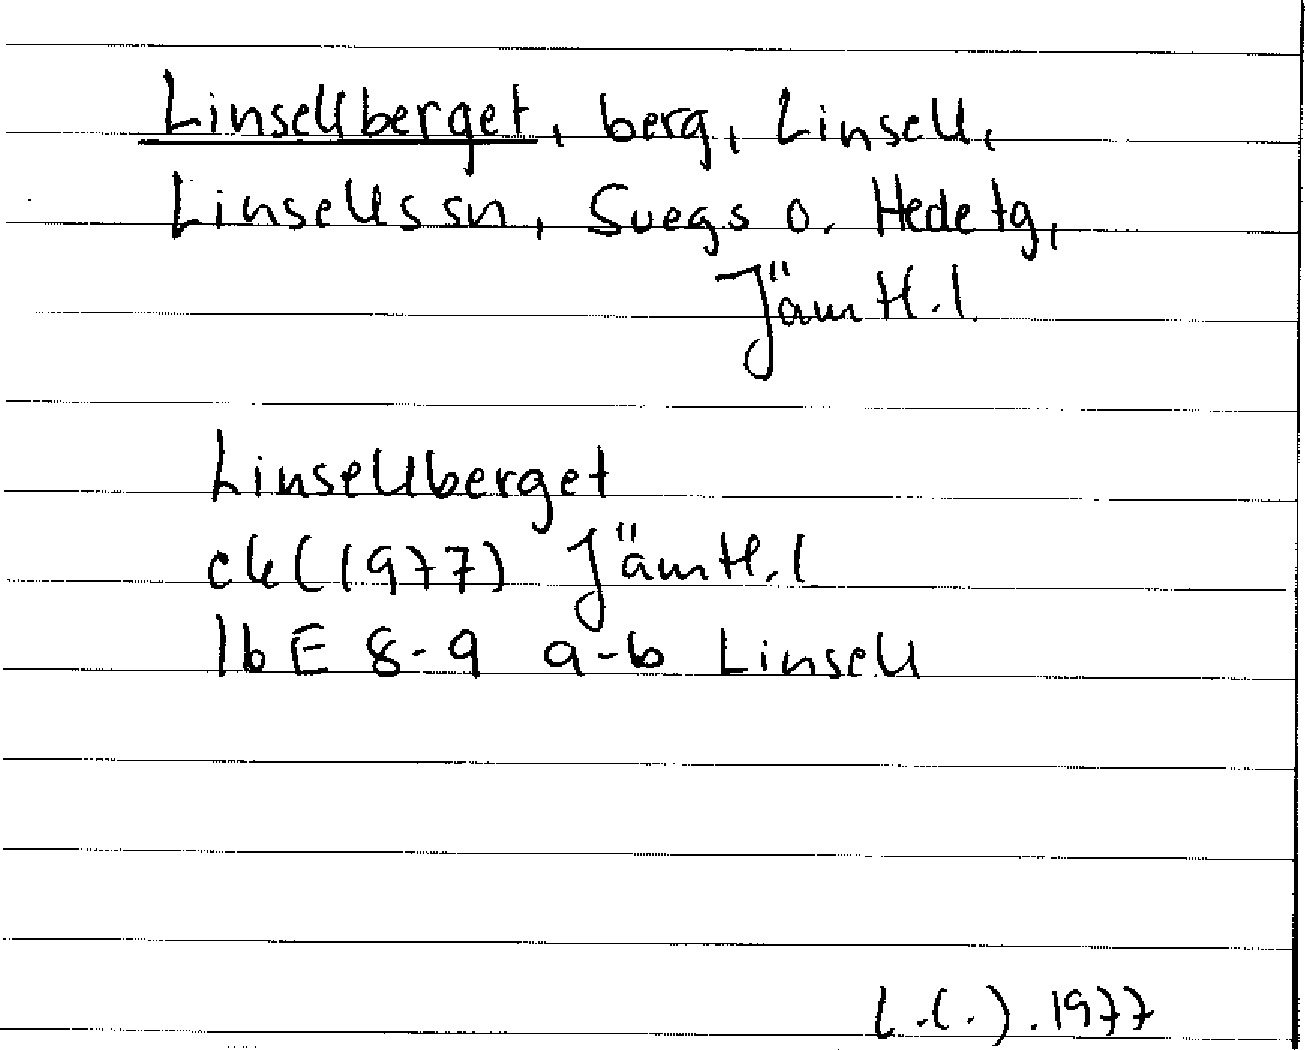 Linsellberget, berg, Linsell,
Linsells sn, Svegs o. Hede tg,
Jämtl. l.
Linsellberget
ek (1977) Jämtl. l
16 E 8-9 a-b Linsell
1977